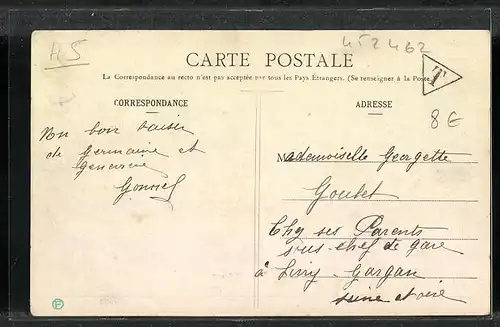 AS
452462
CARTE POSTALE
La Correspondance au recto n'est pas acceptée par tous les Pays Étrangers. (Se renseigner à la Poste)
T
8€
CORRESPONDANCE
Un bon baiser
de Germaine et
Geneviève
ADRESSE
Mademoiselle Georgette
Goubet
Chez ses Parents
sous-chef de gare
à Livry-Gargan
Seine et Oise